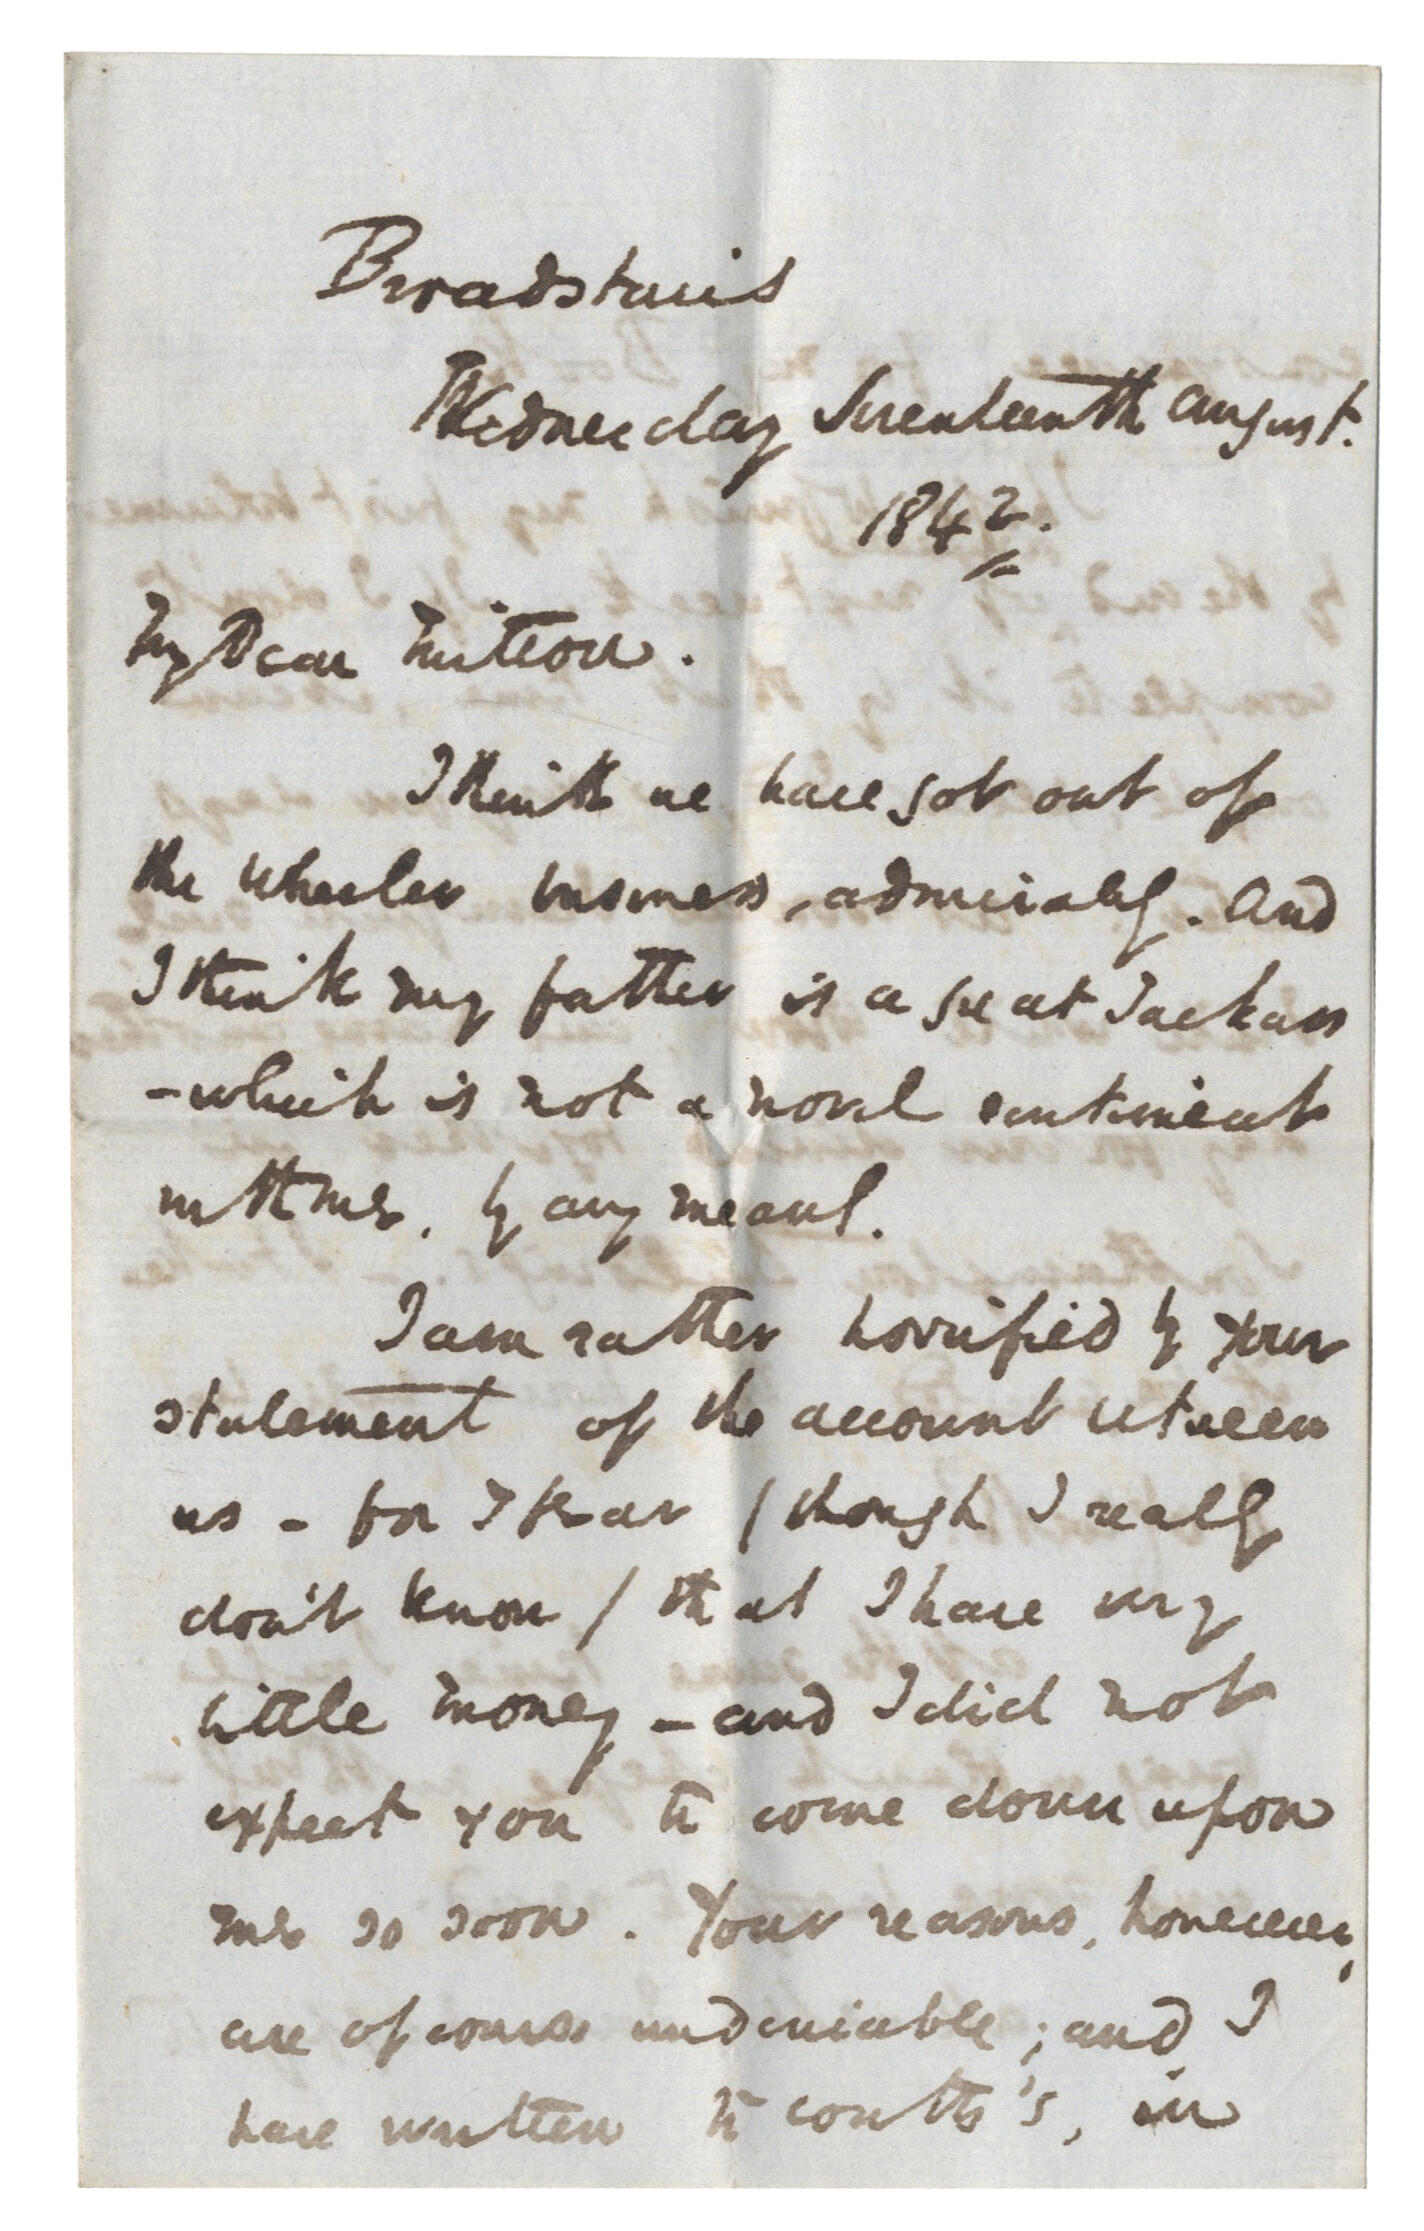 Broadstairs
Wednesday Seventeenth August.
1842.
My Dear Mitton.
I think we have got out of
the Wheeler business, admirably. And
I think my father is a great Jackass
– which is not a novel sentiment
with me, by any means.
I am rather horrified by your
statement of the account between
us – for I fear (though I really
don't know) that I have very
little money – and I did not
expect you to come down upon
me so soon. Your reasons, however,
are of course undeniable; and I
have written to Coutts's, in